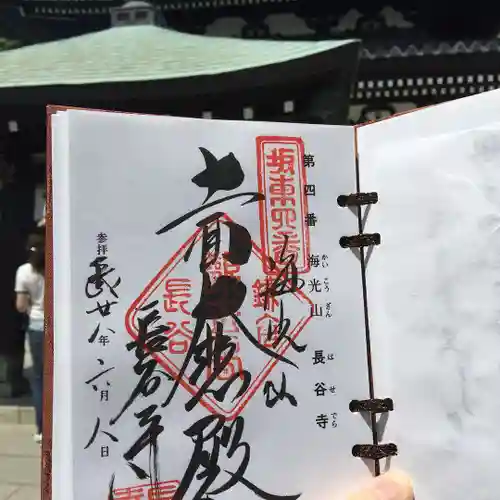 第四番 海光山 長谷寺
かいこうざん はせでら
坂東四番
海光山
十一面大悲殿
長谷
鎌倉
長谷寺
参拝 廿八年 六月 八日